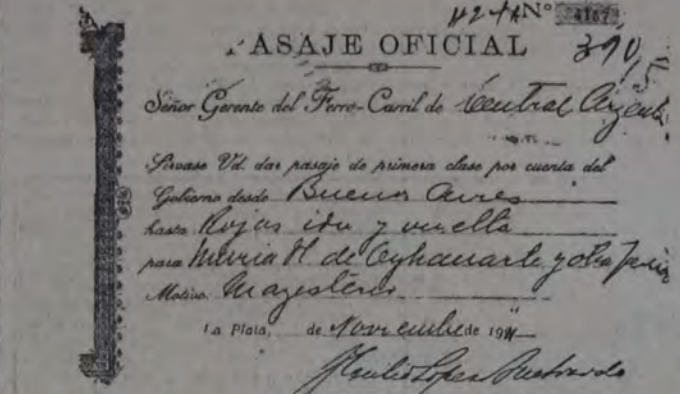 Nº 4167
PASAJE OFICIAL
390
Señor Gerente del Ferro-Carril de Central Argentino
Sirvase Vd. dar pasaje de primera clase por cuenta del
Gobierno desde Buenos Aires
hasta Rojas ida y vuelta
para Maria H. de Oyhanarte y otra
Motivo: Magisterio
La Plata, de Noviembre de 191